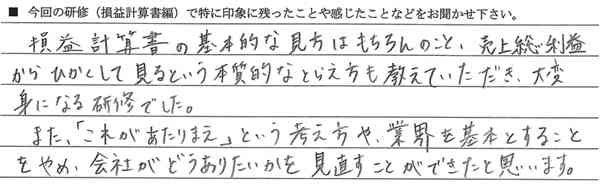 ■ 今回の研修（損益計算書編）で特に印象に残ったことや感じたことなどをお聞かせ下さい。
損益計算書の基本的な見方はもちろんのこと、売上総利益
からひかくして見るという本質的なとらえ方も教えていただき、大変
身になる研修でした。
また、「これがあたりまえ」という考え方や、業界を基本とすること
をやめ、会社がどうありたいかを見直すことができたと思います。